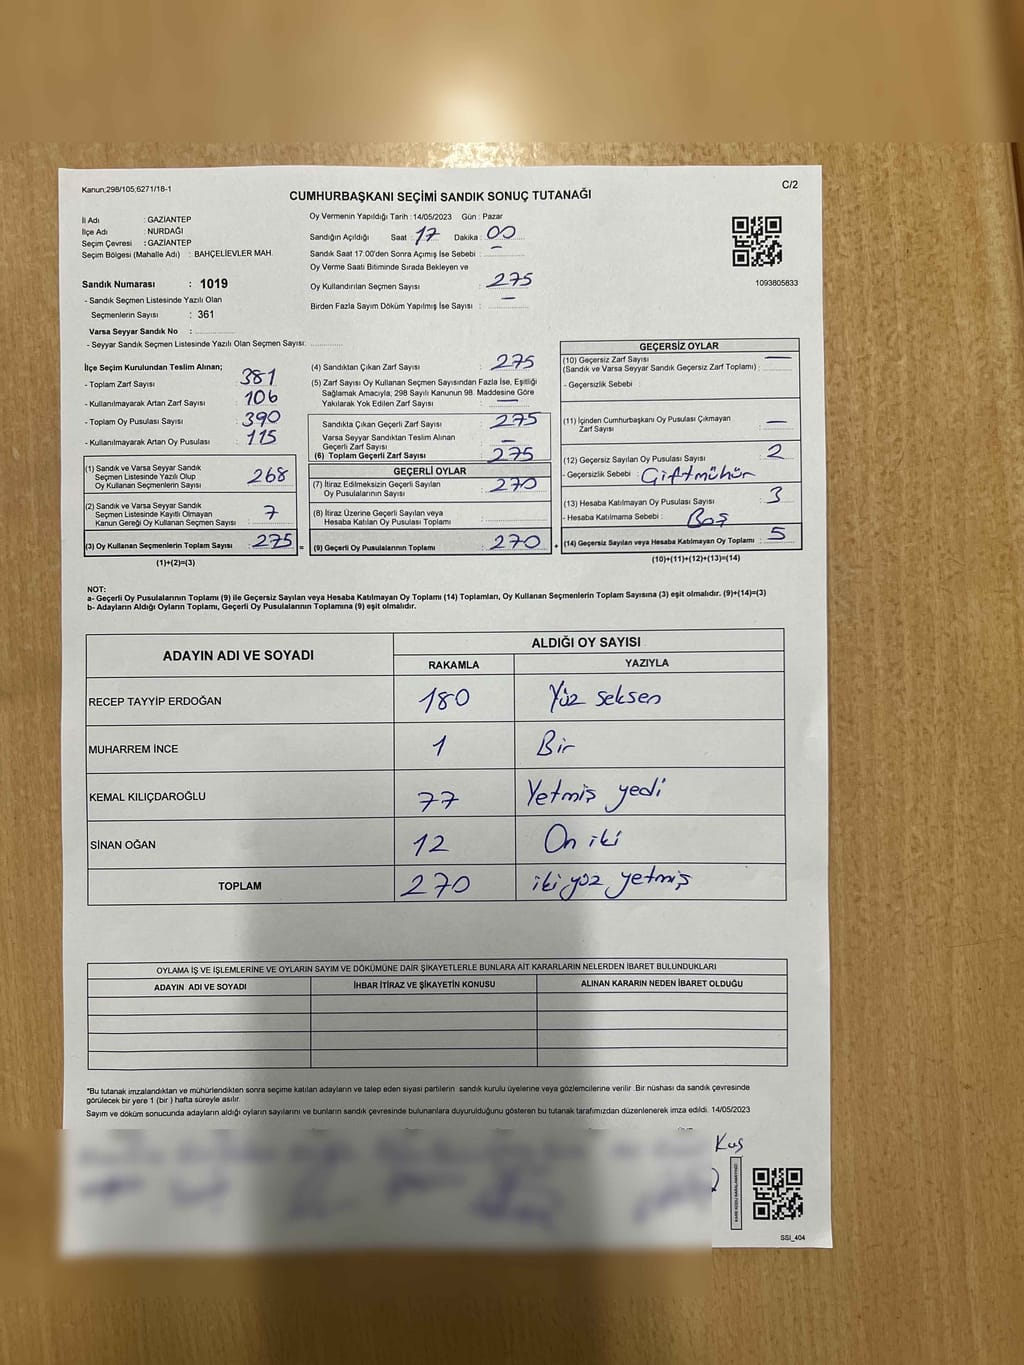 Kanun,298/105;6271/18-1
C/2
CUMHURBAŞKANI SEÇİMİ SANDIK SONUÇ TUTANAĞI
İl Adı : GAZİANTEP
İlçe Adı : NURDAĞI
Seçim Çevresi : GAZİANTEP
Seçim Bölgesi (Mahalle Adı) : BAHÇELİEVLER MAH.
Sandık Numarası : 1019
- Sandık Seçmen Listesinde Yazılı Olan
Seçmenlerin Sayısı : 361
Varsa Seyyar Sandık No :
- Seyyar Sandık Listesinde Yazılı Olan Seçmen Sayısı:
Oy Vermenin Yapıldığı Tarih :14/05/2023 Gün : Pazar
Sandığın Açıldığı Saat : 17 Dakika : 00
Sandık Saat 17:00'den Sonra Açımış İse Sebebi : —
Oy Verme Saati Bitiminde Sırada Bekleyen ve
Oy Kullandırılan Seçmen Sayısı : 275
Birden Fazla Sayım Döküm Yapılmış İse Sayısı : —
1093805833
İlçe Seçim Kurulundan Teslim Alınan;
- Toplam Zarf Sayısı : 381
- Kullanılmayarak Artan Zarf Sayısı : 106
- Toplam Oy Pusulası Sayısı : 390
- Kullanılmayarak Artan Oy Pusulası : 115
(1) Sandık ve Varsa Seyyar Sandık
Seçmen Listesinde Yazılı Olup
Oy Kullanan Seçmenlerin Sayısı : 268
(2) Sandık ve Varsa Seyyar Sandık
Seçmen Listesinde Kayıtlı Olmayan
Kanun Gereği Oy Kullanan Seçmen Sayısı : 7
(3) Oy Kullanan Seçmenlerin Toplam Sayısı : 275 =
(1)+(2)=(3)
(4) Sandıktan Çıkan Zarf Sayısı : 275
(5) Zarf Sayısı Oy Kullanan Seçmen Sayısından Fazla İse, Eşitliği
Sağlamak Amacıyla; 298 Sayılı Kanunun 98. Maddesine Göre
Yakılarak Yok Edilen Zarf Sayısı : —
Sandıkta Çıkan Geçerli Zarf Sayısı : 275
Varsa Seyyar Sandıktan Teslim Alınan
Geçerli Zarf Sayısı : —
(6) Toplam Geçerli Zarf Sayısı : 275
GEÇERLİ OYLAR
(7) İtiraz Edilmeksizin Geçerli Sayılan
Oy Pusulalarının Sayısı : 270
(8) İtiraz Üzerine Geçerli Sayılan veya
Hesaba Katılan Oy Pusulası Toplamı :
(9) Geçerli Oy Pusulalarının Toplamı : 270 +
GEÇERSİZ OYLAR
(10) Geçersiz Zarf Sayısı —
(Sandık ve Varsa Seyyar Sandık Geçersiz Zarf Toplamı) :
- Geçersizlik Sebebi :
(11) İçinden Cumhurbaşkanı Oy Pusulası Çıkmayan
Zarf Sayısı : —
(12) Geçersiz Sayılan Oy Pusulası Sayısı : 2
- Geçersizlik Sebebi : Çiftmühür
(13) Hesaba Katılmayan Oy Pusulası Sayısı : 3
- Hesaba Katılmama Sebebi : Boş
(14) Geçersiz Sayılan veya Hesaba Katılmayan Oy Toplamı : 5
(10)+(11)+(12)+(13)=(14)
NOT:
a- Geçerli Oy Pusulalarının Toplamı (9) ile Geçersiz Sayılan veya Hesaba Katılmayan Oy Toplamı (14) Toplamları, Oy Kullanan Seçmenlerin Toplam Sayısına (3) eşit olmalıdır. (9)+(14)=(3)
b- Adayların Aldığı Oyların Toplamı, Geçerli Oy Pusulalarının Toplamına (9) eşit olmalıdır.
ADAYIN ADI VE SOYADI
ALDIĞI OY SAYISI
RAKAMLA YAZIYLA
RECEP TAYYİP ERDOĞAN 180 Yüz seksen
MUHARREM İNCE 1 Bir
KEMAL KILIÇDAROĞLU 77 Yetmiş yedi
SİNAN OĞAN 12 On iki
TOPLAM 270 iki yüz yetmiş
OYLAMA İŞ VE İŞLEMLERİNE VE OYLARIN SAYIM VE DÖKÜMÜNE DAİR ŞİKAYETLERLE BUNLARA AİT KARARLARIN NELERDEN İBARET BULUNDUKLARI
ADAYIN ADI VE SOYADI İHBAR İTİRAZ VE ŞİKAYETİN KONUSU ALINAN KARARIN NEDEN İBARET OLDUĞU
*Bu tutanak imzalandıktan ve mühürlendikten sonra seçime katılan adayların ve talep eden siyasi partilerin sandık kurulu üyelerine veya gözlemcilerine verilir .Bir nüshası da sandık çevresinde
görülecek bir yere 1 (bir ) hafta süreyle asılır.
Sayım ve döküm sonucunda adayların aldığı oyların sayılarını ve bunların sandık çevresinde bulunanlara duyurulduğunu gösteren bu tutanak tarafımızdan düzenlenerek imza edildi. 14/05/2023
Kuş
KARE KODU KARALAMAYINIZ!
SSI_404